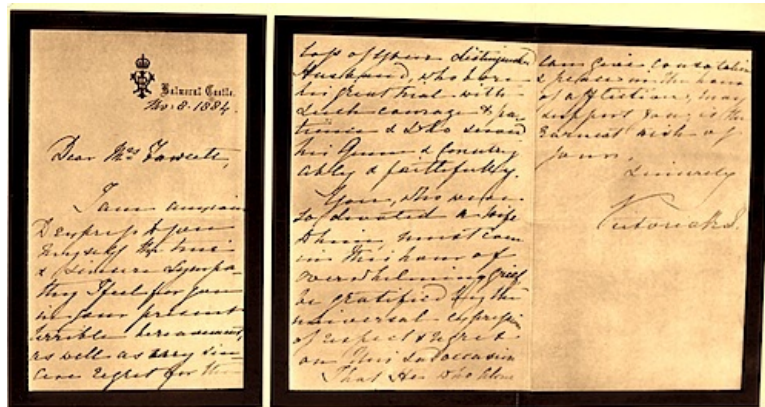 Balmoral Castle.
Nov. 8. 1884.
Dear Mrs Fawcett,
I am anxious
to express to you
myself the true
& sincere sympa-
thy I feel for you
in your present
terrible bereavement,
as well as my sin-
cere regret for the
loss of your distinguished
Husband, who bore
his great trial with
such courage & pa-
tience & who served
his Queen & Country
ably & faithfully.
You, who were
so devoted a wife
to him, must even
in this hour of
overwhelming grief
be gratified by the
universal expression
of respect & regret
on this sad occasion
That He who alone
can give consolation
& peace in the hour
of affliction, may
support you, is the
earnest wish of
yours
sincerely
Victoria R I